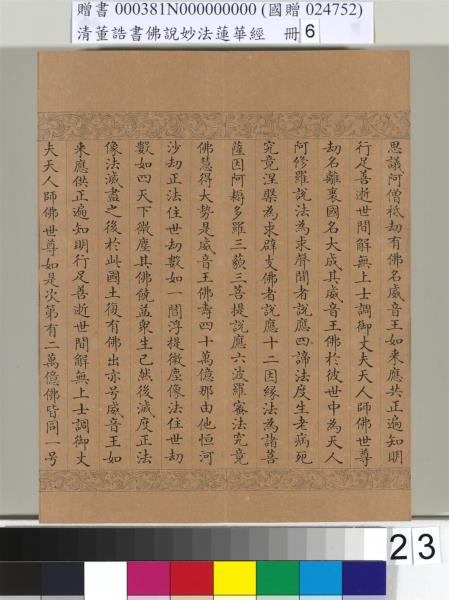 贈書 000381N000000000 (國贈 024752)
清董誥書佛說妙法蓮華經 冊 6
思議阿僧祇劫有佛名威音王如來應供正遍知明
行足善逝世間解無上士調御丈夫天人師佛世尊
劫名離衰國名大成其威音王佛於彼世中為天人
阿修羅說法為求聲聞者說應四諦法度生老病死
究竟涅槃為求辟支佛者說應十二因緣法為諸菩
薩因阿耨多羅三藐三菩提說應六波羅蜜法究竟
佛慧得大勢是威音王佛壽四十萬億那由他恒河
沙劫正法住世劫數如一閻浮提微塵像法住世劫
數如四天下微塵其佛饒益眾生已然後滅度正法
像法滅盡之後於此國土復有佛出亦号威音王如
來應供正遍知明行足善逝世間解無上士調御丈
夫天人師佛世尊如是次第有二萬億佛皆同一号
23